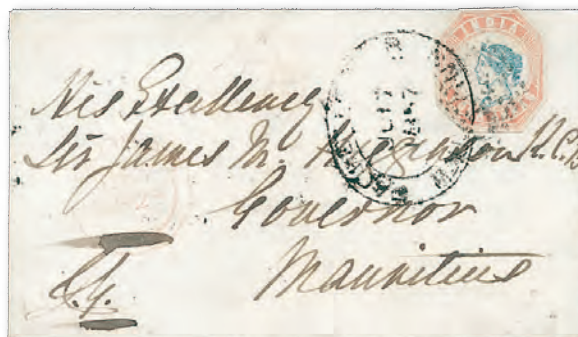 INDIA
His Excellency
Sir James M. Higginson K.C.B
Governor
Mauritius